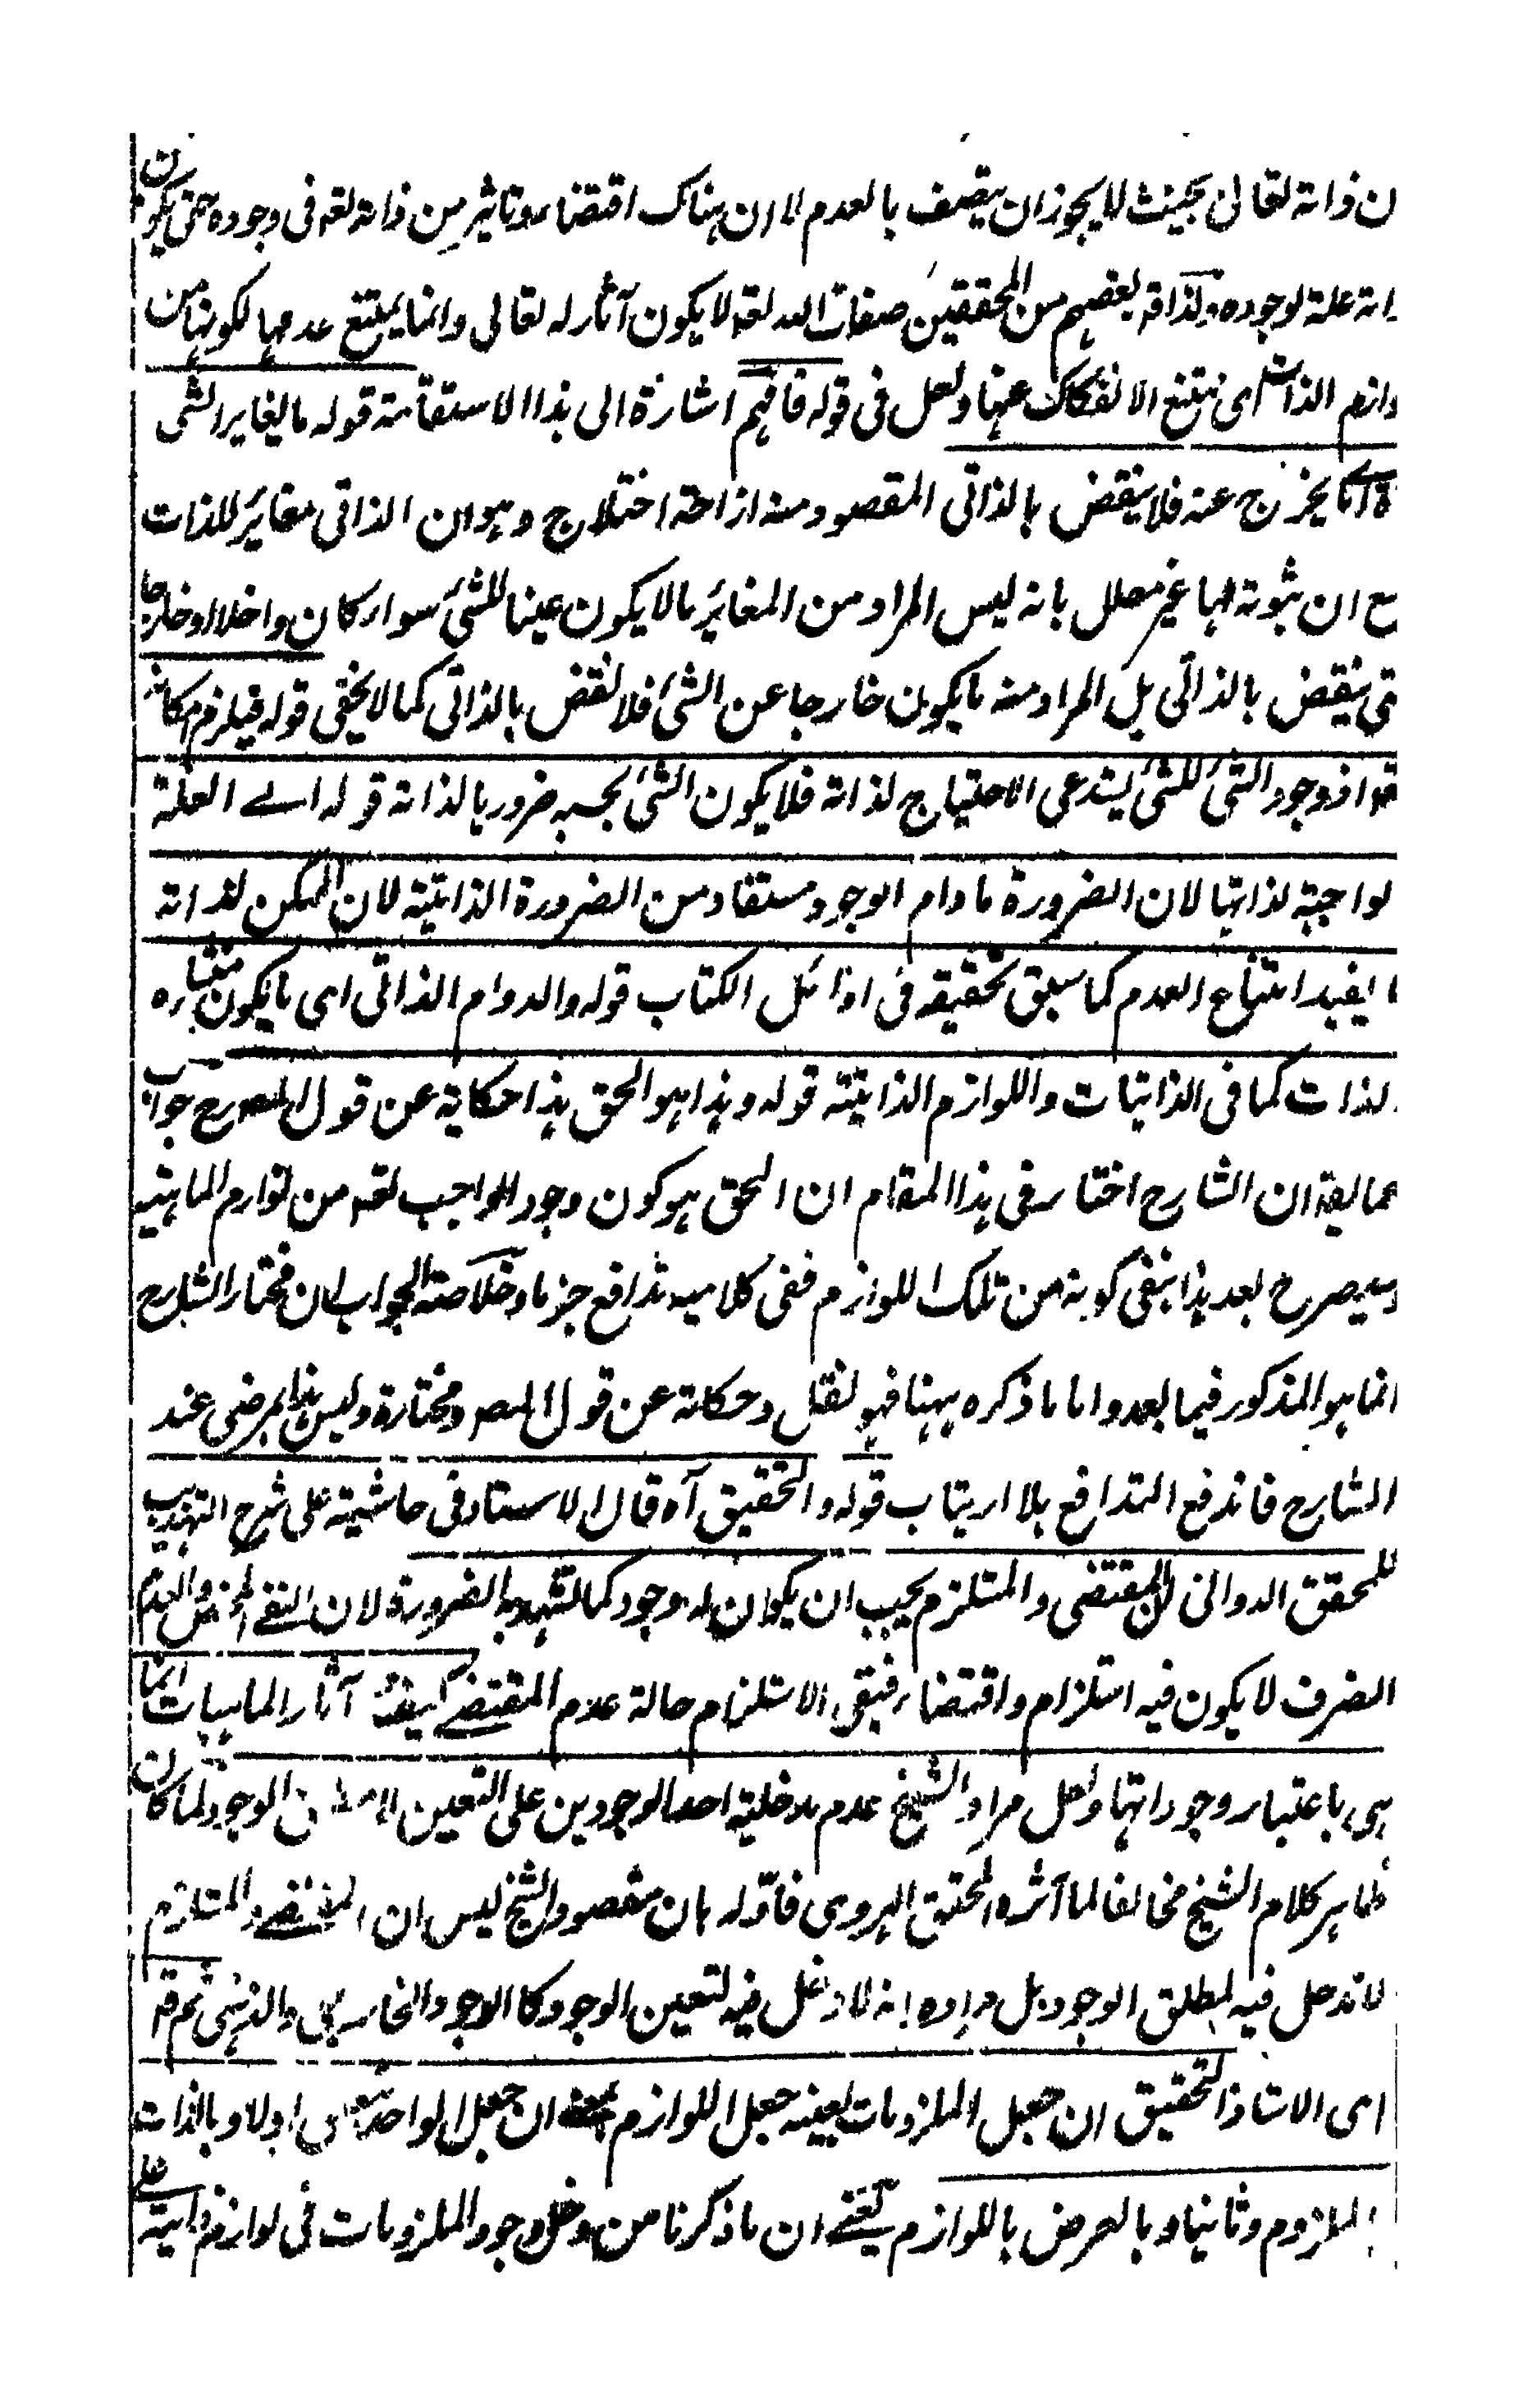 ن ذاته تعالى بحيث لا يجوز ان يتصف بالعدم لا ان هناك اقتضاء وتاثير من ذاته تعه فى وجوده حتى يكون
اته علة لوجوده ولذا قم بعضهم من المحققين صفات الله تعه لا يكون آثار له تعالى وانما يمتنع عدمها لكونها من
وازم الذات اى يمتنع الانفكاك عنها ولعل فى قوله فافهم اشارة الى هذا الاستقامة قوله ما يغاير الشى
اى ما يخرج عنه فلا ينقض بالذاتى المقصود منه ازاحة اختلاج وهو ان الذاتى مغاير للذات
مع ان ثبوته لها غير معلل بانه ليس المراد من المغاير ما لا يكون عينا للشئ سواء كان داخلا او خارجا
حتى ينقض بالذاتى بل المراد منه ما يكون خارجا عن الشئ فلا نقض بالذاتى كما لا يخفى قوله فيلزم امكانه
اذ وجود الشئ للشئ يستدعى الاحتياج لذاته فلا يكون الشئ بحسبه ضروريا لذاته قوله اے العلة
لواجبة لذاتها لان الضرورة ما دام الوجود مستفاد من الضرورة الذاتية لان الممكن لذاته
ا يفيد امتناع العدم كما سبق تحقيقه فى اوائل الكتاب قوله والدوام الذاتى اى ما يكون منشاره
لذات كما فى الذاتيات واللوازم الذاتية قوله وهذا هو الحق هذا حكاية عن قول المصرح جواب
عما يقه ان الشارح اختار فى هذا المقام ان الحق هو كون وجود الواجب تعه من لوازم الماهية
وسيصرح بعد هذا بنفى كونه من تلك اللوازم ففى كلاميه تدافع جزما وخلاصة الجواب ان مختار الشارح
انما هو المذكور فيما بعد واما ما ذكره ههنا فهو نقل وحكاية عن قول المص ومختاره وليس هذا بمرضى عند
الشارح فاندفع التدافع بلا ارتياب قوله والتحقيق آه قال الاستاد فى حاشيته على شرح التهذيب
للمحقق الدوانى ان المقتضى والمستلزم يجب ان يكون له وجود كما تشهد به الضرورة لان النفى المحض والعدم
الصرف لا يكون فيه استلزام واقتضاء فبقى الاستلزام حالة عدم المقتضے كيف آثار الماهيات انما
هى باعتبار وجوداتها ولعل مراد الشيخ عدم مدخلية احد الوجودين على التعين الوجود لما كان
ظاهر كلام الشيخ مخالفا لما آثره المحقق الهروى فاوّله بان مقصود الشيخ ليس ان المقتضے والمستلزم
لا تدخل فيه لمطلق الوجود بل مراده انه لا دخل فيه لتعين الوجود كالوجود الخارجى والذهنى ثم قم
اى الاستاذ التحقيق ان جعل الملزومات بعينه جعل اللوازم بمعنے ان جعل الواحد اولا وبالذات
الملزوم وثانيا وبالعرض باللوازم يعنے ان ما ذكرنا من دخل وجود الملزومات فى لوازم ذاتية على